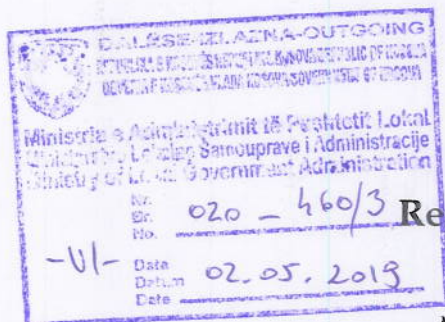 DALËSE-IZLAZNA-OUTGOING
Ministria e Administrimit të Pushtetit Lokal
Ministarstvo Lokalne Samouprave i Administracije
Ministry of Local Government Administration
Nr.
Br. 020 - 460/3
No.
Re
-VI-
Data
Datum 02.05.2019
Date